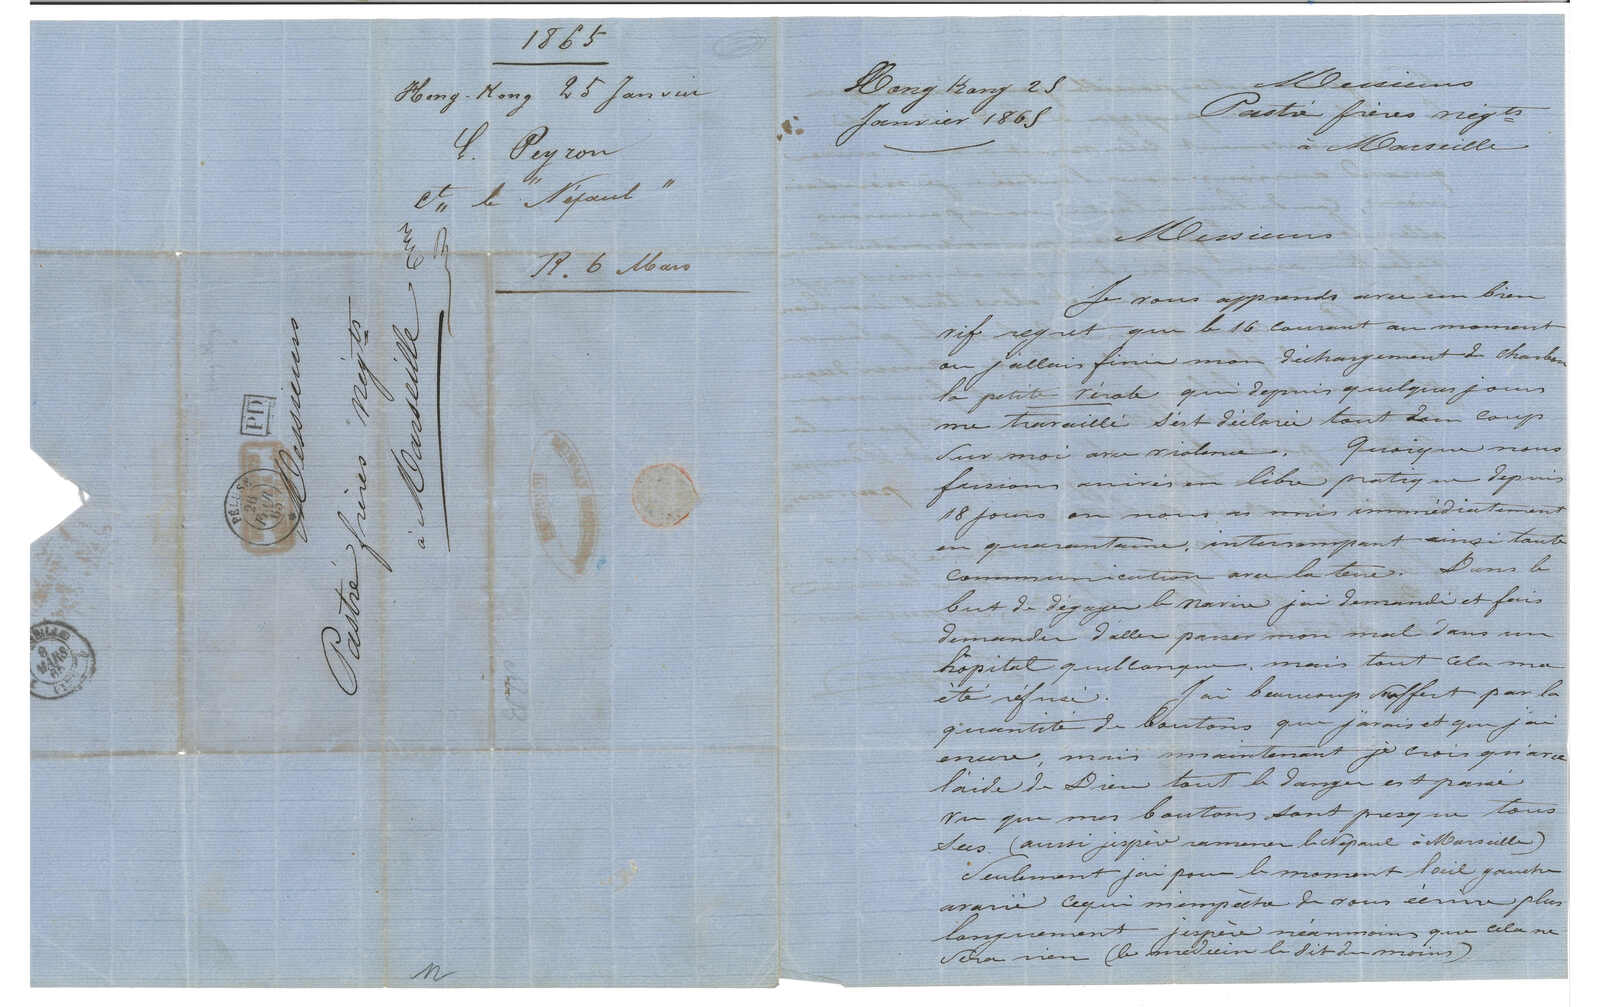 1865
Hong-Kong 25 Janvier
C. Peyron
Cte le "Népaul"
R. 6 Mars
Messieurs
Pastré frères négts
à Marseille
PD
26
MARS
Hong Kong 25
Janvier 1865
Messieurs
Pastré frères négts
à Marseille
Messieurs
Je vous apprends avec un bien
vif regret que le 16 courant au moment
ou j'allais finir mon déchargement de charbon
la petite vérole qui depuis quelques jours
me travaillé s'est déclarée tout d'un coup
sur moi avec violence. Quoique nous
fussions arrivés en libre pratique depuis
18 jours on nous as mis immédiatement
en quarantaine, interrompant ainsi toute
communication avec la terre. Dans le
but de dégager le navire j'ai demandé et fais
demander d'aller passer mon mal dans un
hôpital quelconque, mais tout cela ma
été réfusé. J'ai beaucoup souffert par la
quantité de boutons que j'avais et que j'ai
encore, mais maintenant je crois qu'avec
l'aide de Dieu tout le danger est passé
vu que mes boutons sont presque tous
secs (aussi j'espère ramener le Népaul à Marseille)
Seulement j'ai pour le moment l'œil gauche
avarié ce qui m'empêche de vous écrire plus
longuement j'espère néanmoins que cela ne
sera rien (le médecin le dit du moins)